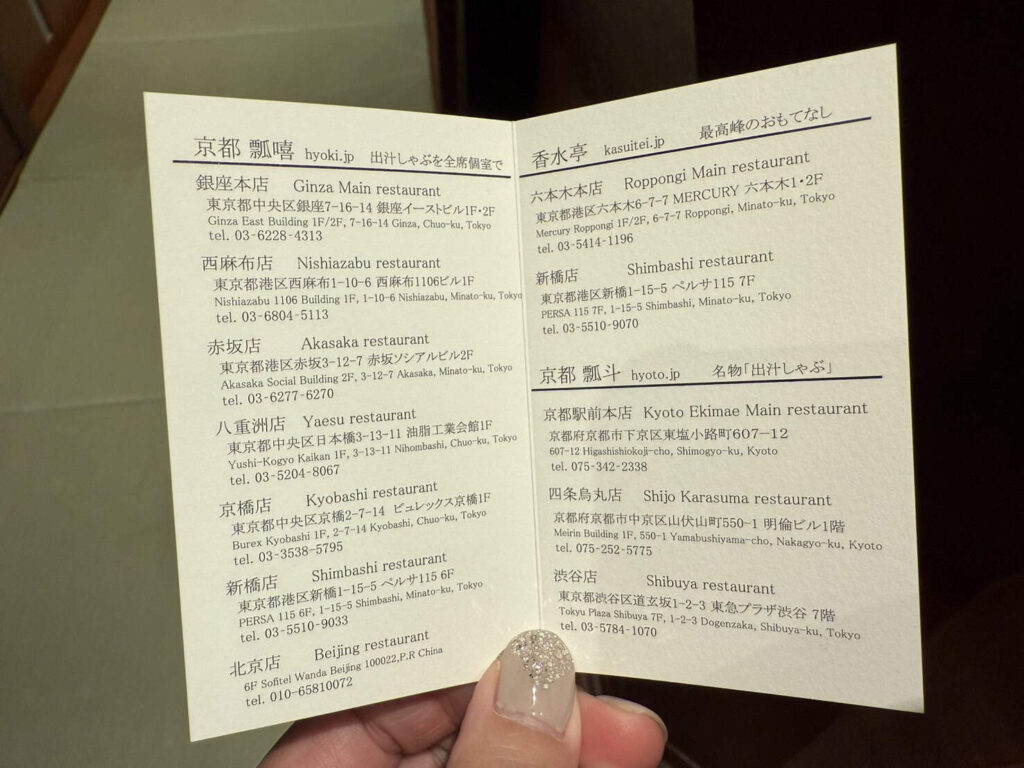 京都 瓢嘻 hyoki.jp 出汁しゃぶを全席個室で
銀座本店 Ginza Main restaurant
東京都中央区銀座7-16-14 銀座イーストビル1F・2F
Ginza East Building 1F/2F, 7-16-14 Ginza, Chuo-ku, Tokyo
tel. 03-6228-4313
西麻布店 Nishiazabu restaurant
東京都港区西麻布1-10-6 西麻布1106ビル1F
Nishiazabu 1106 Building 1F, 1-10-6 Nishiazabu, Minato-ku, Tokyo
tel. 03-6804-5113
赤坂店 Akasaka restaurant
東京都港区赤坂3-12-7 赤坂ソシアルビル2F
Akasaka Social Building 2F, 3-12-7 Akasaka, Minato-ku, Tokyo
tel. 03-6277-6270
八重洲店 Yaesu restaurant
東京都中央区日本橋3-13-11 油脂工業会館1F
Yushi-Kogyo Kaikan 1F, 3-13-11 Nihombashi, Chuo-ku, Tokyo
tel. 03-5204-8067
京橋店 Kyobashi restaurant
東京都中央区京橋2-7-14 ビュレックス京橋1F
Burex Kyobashi 1F, 2-7-14 Kyobashi, Chuo-ku, Tokyo
tel. 03-3538-5795
新橋店 Shimbashi restaurant
東京都港区新橋1-15-5 ペルサ115 6F
PERSA 115 6F, 1-15-5 Shimbashi, Minato-ku, Tokyo
tel. 03-5510-9033
北京店 Beijing restaurant
6F Sofitel Wanda Beijing 100022,P.R China
tel. 010-65810072
香水亭 kasuitei.jp 最高峰のおもてなし
六本木本店 Roppongi Main restaurant
東京都港区六本木6-7-7 MERCURY 六本木1・2F
Mercury Roppongi 1F/2F, 6-7-7 Roppongi, Minato-ku, Tokyo
tel. 03-5414-1196
新橋店 Shimbashi restaurant
東京都港区新橋1-15-5 ペルサ115 7F
PERSA 115 7F, 1-15-5 Shimbashi, Minato-ku, Tokyo
tel. 03-5510-9070
京都 瓢斗 hyoto.jp 名物「出汁しゃぶ」
京都駅前本店 Kyoto Ekimae Main restaurant
京都府京都市下京区東塩小路町607−12
607-12 Higashishiokoji-cho, Shimogyo-ku, Kyoto
tel. 075-342-2338
四条烏丸店 Shijo Karasuma restaurant
京都府京都市中京区山伏山町550-1 明倫ビル1階
Meirin Building 1F, 550-1 Yamabushiyama-cho, Nakagyo-ku, Kyoto
tel. 075-252-5775
渋谷店 Shibuya restaurant
東京都渋谷区道玄坂1-2-3 東急プラザ渋谷 7階
Tokyu Plaza Shibuya 7F, 1-2-3 Dogenzaka, Shibuya-ku, Tokyo
tel. 03-5784-1070